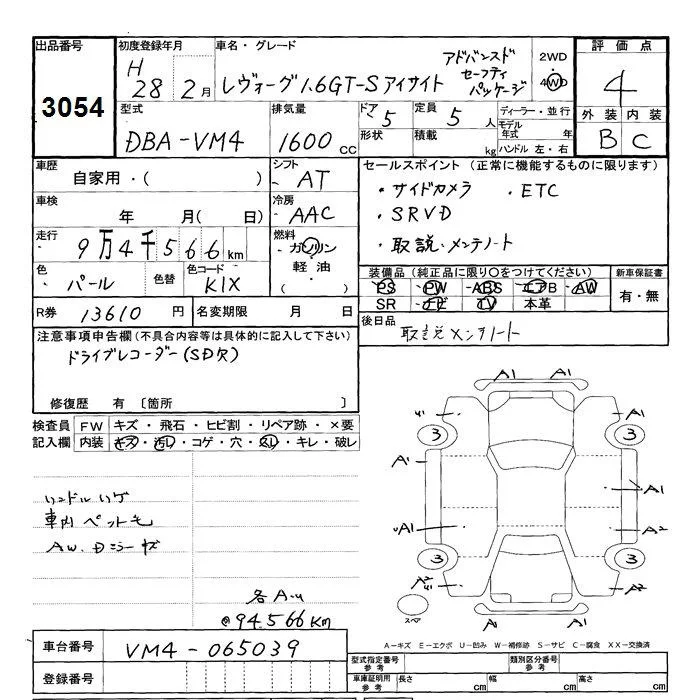 出品番号
3054
初度登録年月
H
28 2月
車名・グレード
レヴォーグ 1.6GT-S アイサイト
アドバンスド
セーフティ
パッケージ
2WD
4WD
評価点
4
外装 内装
B C
型式
DBA-VM4
排気量
1600 cc
ドア 5
定員 5 人
形状
積載 kg
ディーラー・並行
モデル
年式 年
ハンドル 左・右
車歴
自家用・( )
シフト
AT
車検
年 月( 日)
冷房
AAC
走行
9万4千566km
燃料
ガソリン
軽油
( )
色
パール
色替
色コード
K1X
R券 13610 円
名変期限 月 日
セールスポイント (正常に機能するものに限ります)
・サイドカメラ ・ETC
・SRVD
・取説・メンテノート
装備品 (純正品に限り〇をつけてください)
PS PW ABS エアB AW
SR ナビ TV 本革
新車保証書
有・無
後日品
取説 メンテノート
注意事項申告欄 (不具合内容等は具体的に記入して下さい)
ドライブレコーダー(SDR)
修復歴 有 〔箇所 〕
検査員
記入欄
FW キズ・飛石・ヒビ割・リペア跡・×要
内装 キズ・汚れ・コゲ・穴・スレ・キレ・破レ
ハンドル ハゲ
車内 ペット毛
AW. Dミラー キズ
各A-U
@94566Km
A1 A1
A1
3 3
A1
A1
A1 A2
3 3
A2 A2
スペア
A-キズ E-エクボ U-凹み W-補修跡 S-サビ C-腐食 XX-交換済
車台番号
VM4-065039
登録番号
型式指定番号
参考
類別区分番号
参考
車庫証明用
参考
長さ cm 幅 cm 高さ cm